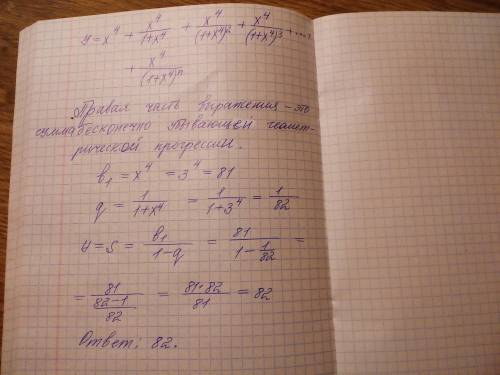 y = x⁴ + x⁴/(1+x⁴) + x⁴/(1+x⁴)² + x⁴/(1+x⁴)³ + ...+
+ x⁴/(1+x⁴)ⁿ
Правая часть выражения – это
сумма бесконечно убывающей геомет-
рической прогрессии.
b₁ = x⁴ = 3⁴ = 81
q = 1/(1+x⁴) = 1/(1+3⁴) = 1/82
y = S = b₁/(1-q) = 81/(1 - 1/82) =
= 81/((82-1)/82) = 81·82/81 = 82
Ответ: 82.